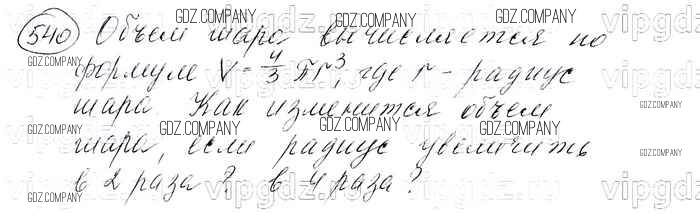 GDZ.COMPANY GDZ.COMPANY GDZ.COMPANY
540 Объем шара вычисляется по
формуле V = 4/3 πr³, где r - радиус
шара. Как изменится объем
GDZ.COMPANY GDZ.COMPANY GDZ.COMPANY GDZ.COMPANY
шара, если радиус увеличить
в 2 раза? в 4 раза?
GDZ.COMPANY GDZ.COMPANY GDZ.COMPANY
vipgdz.ru